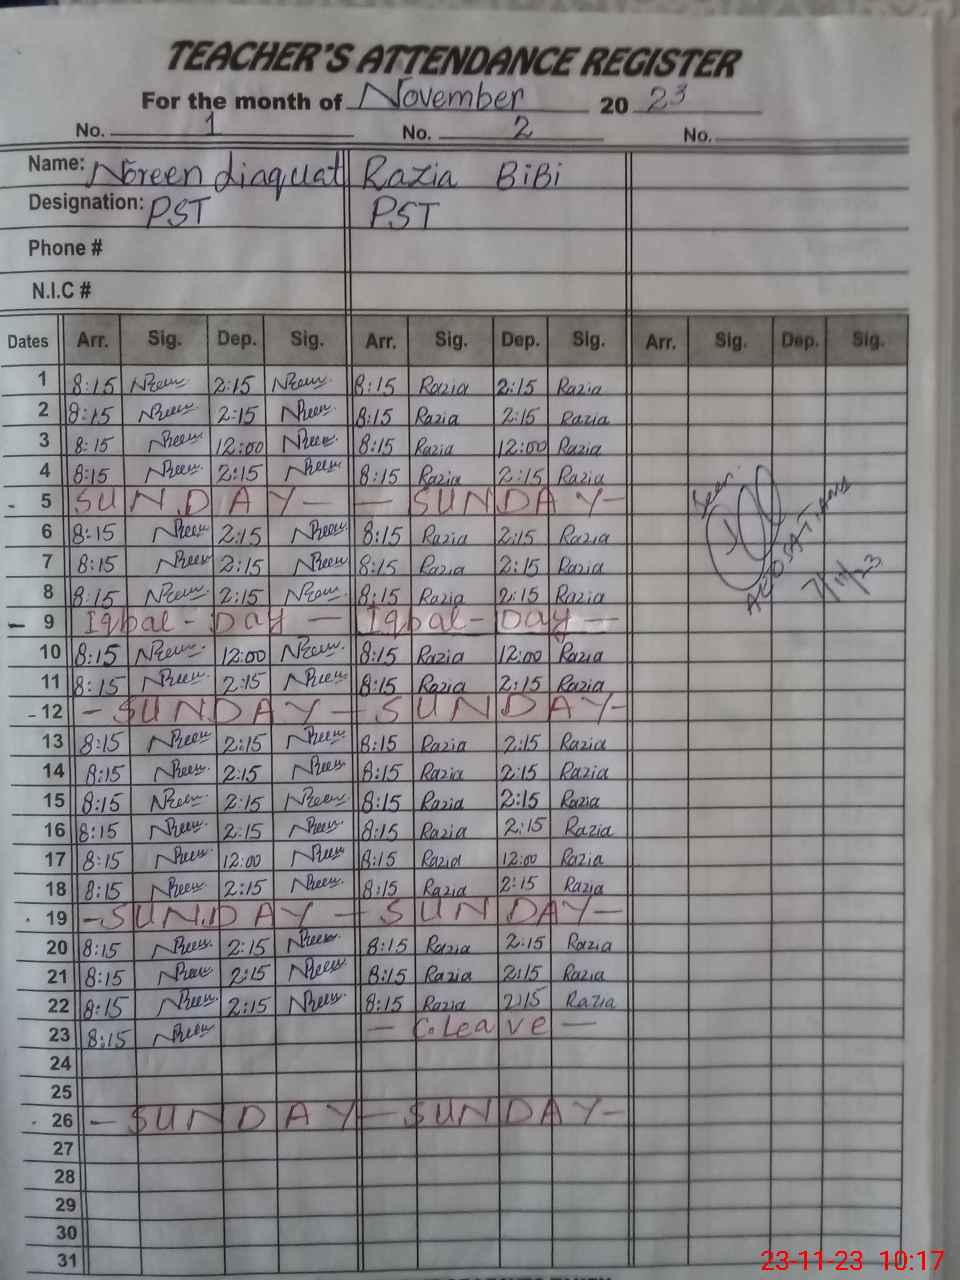 TEACHER'S ATTENDANCE REGISTER
For the month of November 20 23
No. 1 No. 2 No.
Name: Noreen Liaquat Razia BiBi
Designation: PST PST
Phone #
N.I.C #
Dates Arr. Sig. Dep. Sig. Arr. Sig. Dep. Sig. Arr. Sig. Dep. Sig.
1 8:15 Nreen 2:15 Nreen 8:15 Razia 2:15 Razia
2 8:15 Nreen 2:15 Nreen 8:15 Razia 2:15 Razia
3 8:15 Nreen 12:00 Nreen 8:15 Razia 12:00 Razia
4 8:15 Nreen 2:15 Nreen 8:15 Razia 2:15 Razia
5 SUNDAY - - SUNDAY -
6 8:15 Nreen 2:15 Nreen 8:15 Razia 2:15 Razia
7 8:15 Nreen 2:15 Nreen 8:15 Razia 2:15 Razia
8 8:15 Nreen 2:15 Nreen 8:15 Razia 2:15 Razia
9 Iqbal - Day - Iqbal - Day -
10 8:15 Nreen 12:00 Nreen 8:15 Razia 12:00 Razia
11 8:15 Nreen 2:15 Nreen 8:15 Razia 2:15 Razia
12 - SUNDAY - SUNDAY -
13 8:15 Nreen 2:15 Nreen 8:15 Razia 2:15 Razia
14 8:15 Nreen 2:15 Nreen 8:15 Razia 2:15 Razia
15 8:15 Nreen 2:15 Nreen 8:15 Razia 2:15 Razia
16 8:15 Nreen 2:15 Nreen 8:15 Razia 2:15 Razia
17 8:15 Nreen 12:00 Nreen 8:15 Razia 12:00 Razia
18 8:15 Nreen 2:15 Nreen 8:15 Razia 2:15 Razia
19 - SUNDAY - SUNDAY -
20 8:15 Nreen 2:15 Nreen 8:15 Razia 2:15 Razia
21 8:15 Nreen 2:15 Nreen 8:15 Razia 2:15 Razia
22 8:15 Nreen 2:15 Nreen 8:15 Razia 2:15 Razia
23 8:15 Nreen - C.Leave -
24
25
26 - SUNDAY - SUNDAY -
27
28
29
30
31
Seen
7/11/23
23-11-23 10:17